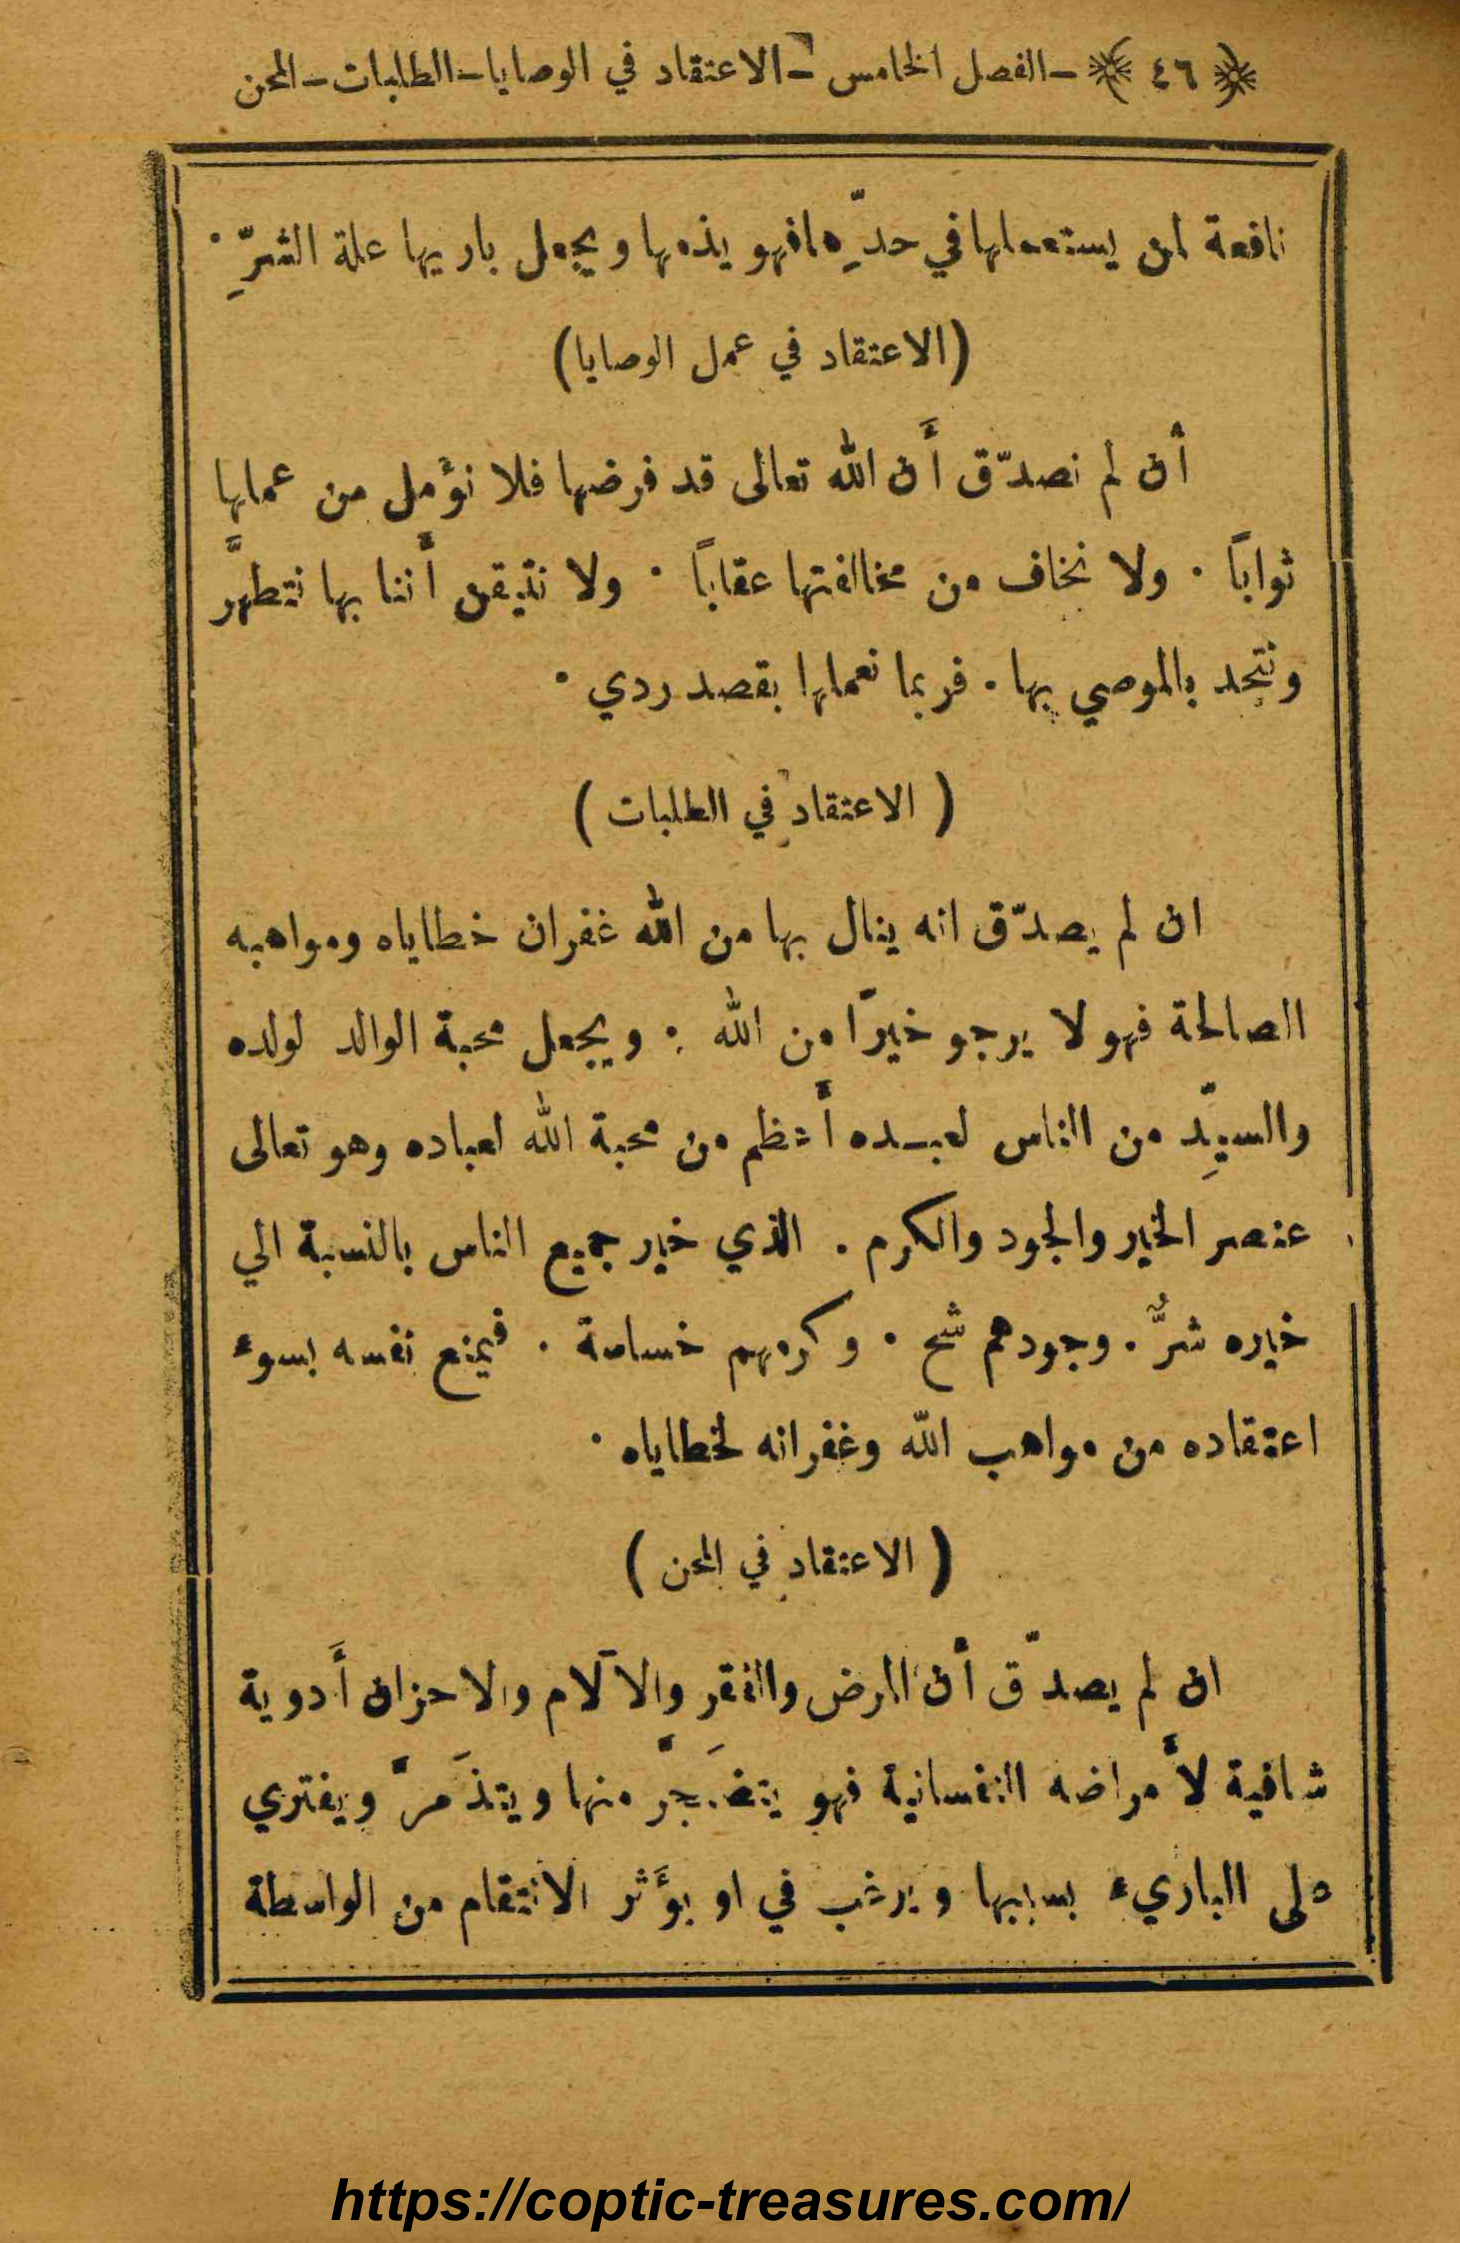 ﴿ ٤٦ ﴾ –الفصل الخامس – الاعتقاد في الوصايا–الطلبات–المحن
نافعة لمن يستعملها في حدِّها فهو يذمها ويجعل باريها علة الشرِّ ·
(الاعتقاد في عمل الوصايا)
أن لم نصدّق أَن الله تعالى قد فرضها فلا نؤمل من عملها
ثواباً · ولا نخاف من مخالفتها عقاباً · ولا نتيقن أَننا بها نتطهَّر
ونتحد بالموصي بها . فربما نعملها بقصد ردي ·
( الاعتقاد في الطلبات )
ان لم يصدّق انه ينال بها من الله غفران خطاياه ومواهبه
الصالحة فهو لا يرجو خيرًا من الله . ويجعل محبة الوالد لولده
والسيِّد من الناس لعبده أَعظم من محبة الله لعباده وهو تعالى
عنصر الخير والجود والكرم . الذي خير جميع الناس بالنسبة الي
خيره شرٌّ . وجودهم شح · وكرمهم خساسة . فيمنع نفسه بسوء
اعتقاده من مواهب الله وغفرانه لخطاياه ·
( الاعتقاد في المحن )
ان لم يصدّق أن المرض والفقر والآلام والاحزان أَدوية
شافية لأَمراضه النفسانية فهو يتضجَّر منها ويتذمَّر ويفتري
على الباريء بسببها ويرغب في او يؤَثر الانتقام من الواسطة
https://coptic-treasures.com/